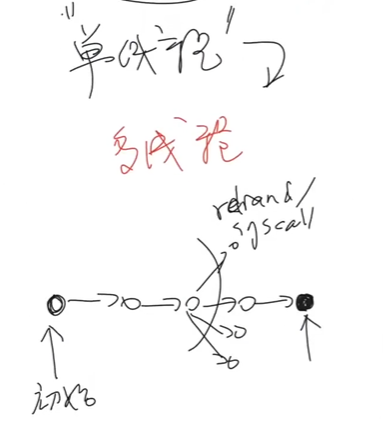 "单线程"
多线程
rdrand/
syscall
初始